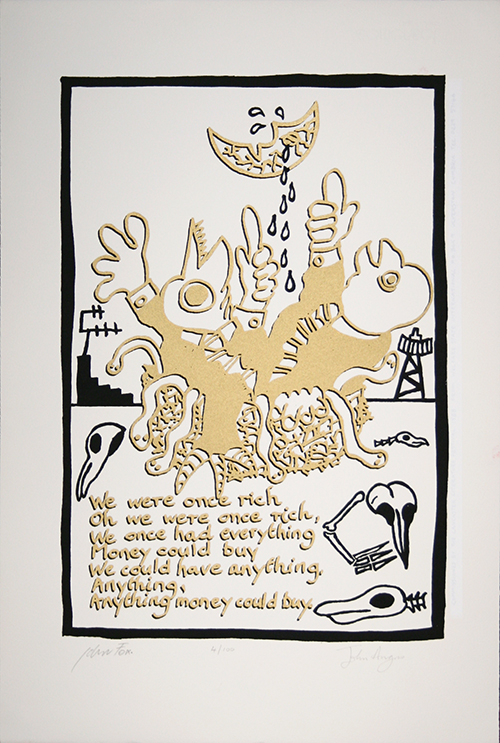 We were once rich
Oh we were once rich,
We once had everything
Money could buy
We could have anything,
Anything,
Anything money could buy.
John Fox